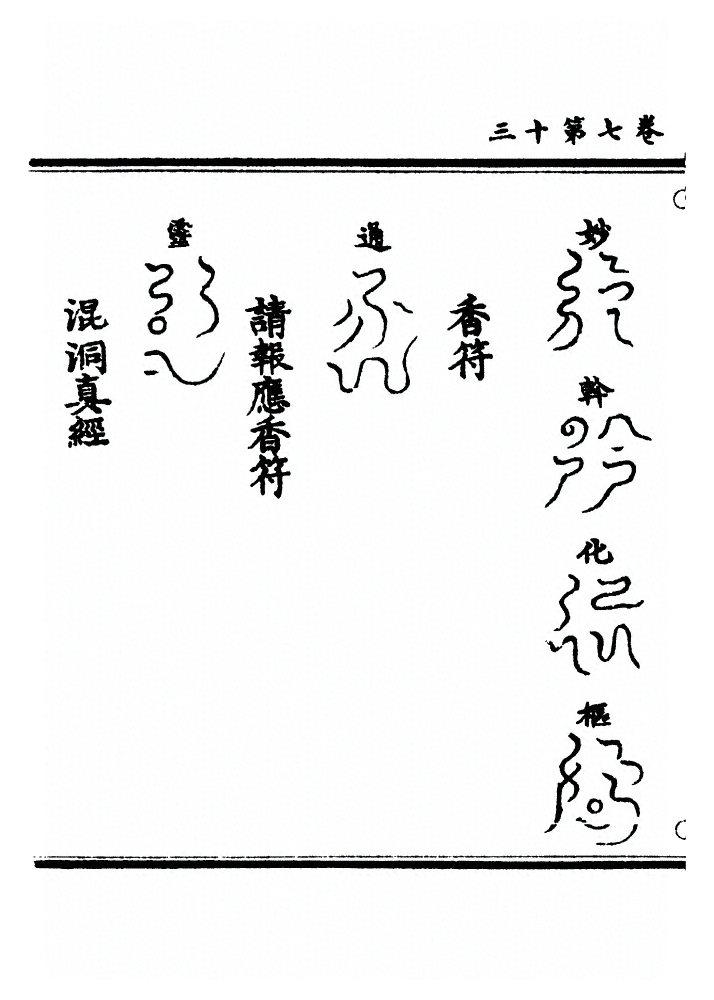 卷七第十三
妙
幹
化
樞
香符
通
請報應香符
靈
混洞真經